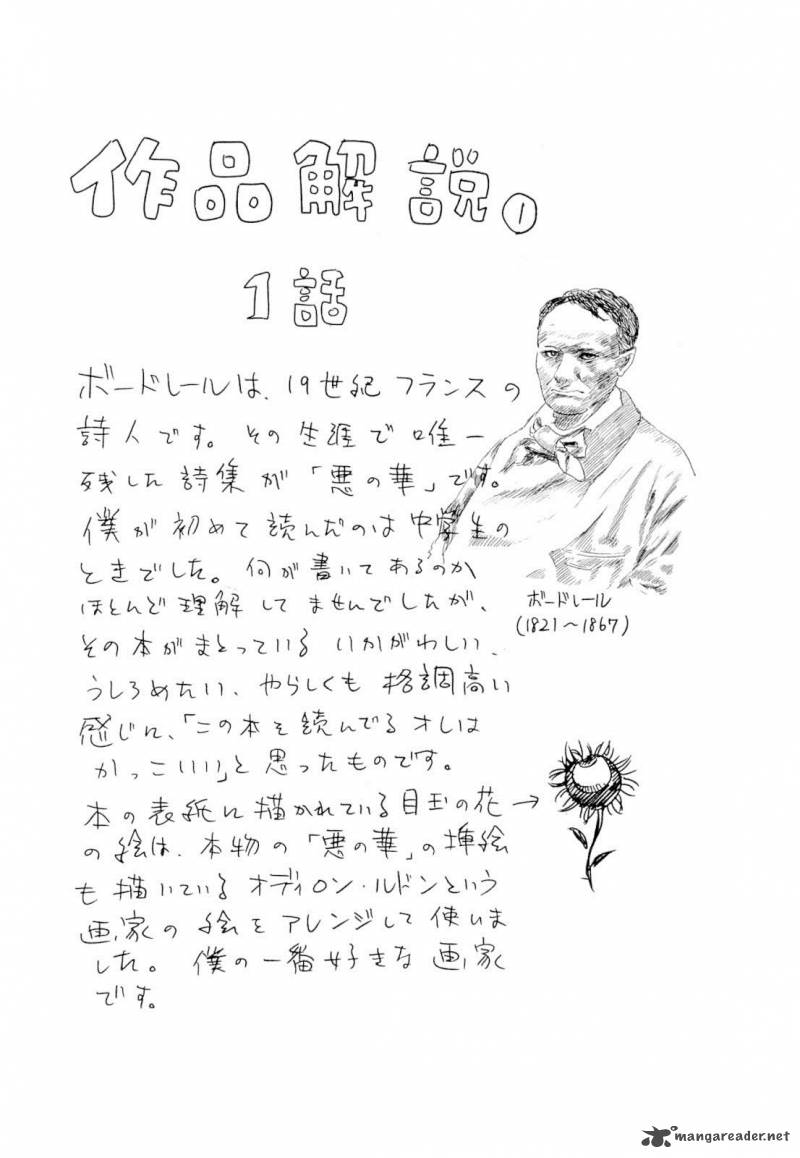 作品解説①
1話
ボードレールは、19世紀フランスの
詩人です。その生涯で唯一
残した詩集が「悪の華」です。
僕が初めて読んだのは中学生の
ときでした。何が書いてあるのか
ほとんど理解してませんでしたが、
その本がまとっているいかがわしい、
うしろめたい、やらしくも格調高い
感じに、「この本を読んでるオレは
かっこいい」と思ったものです。
本の表紙に描かれている目玉の花→
の絵は、本物の「悪の華」の挿絵
も描いているオディロン・ルドンという
画家の絵をアレンジして使いま
した。僕の一番好きな画家
です。
ボードレール
(1821〜1867)
mangareader.net